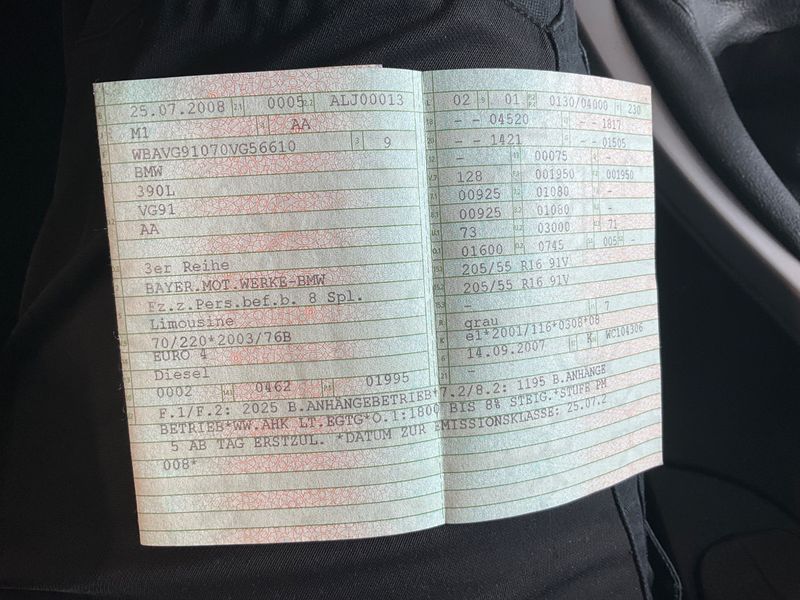 25.07.2008 0005 ALJ00013
M1 AA
WBAVG91070VG56610 9
BMW
390L
VG91
AA
3er Reihe
BAYER.MOT.WERKE-BMW
Fz.z.Pers.bef.b. 8 Spl.
Limousine
70/220*2003/76B
EURO 4
Diesel
0002 0462 01995
02 01 0130/04000 230
- - 04520 - - 1817
- - 1421 - - 01505
- 00075 -
128 001950 001950
00925 01080 -
00925 01080 -
73 03000 71
01600 0745 005 -
205/55 R16 91V
205/55 R16 91V
-
grau 7
e1*2001/116*0308*08
14.09.2007 K WC104306
-
F.1/F.2: 2025 B.ANHÄNGEBETRIEB*7.2/8.2: 1195 B.ANHÄNGE
BETRIEB*WW.AHK LT.EGTG*O.1:1800 BIS 8% STEIG.*STUFE PM
5 AB TAG ERSTZUL. *DATUM ZUR EMISSIONSKLASSE: 25.07.2
008*